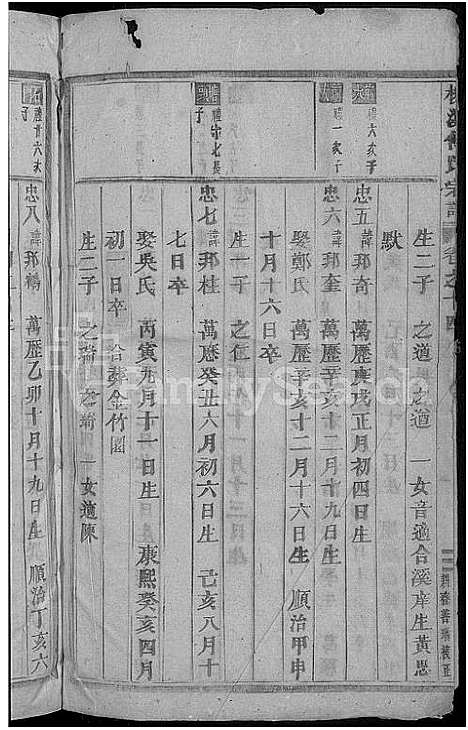 宗譜 卷之十四
生二子 之道 之道 一女音適合溪庠生黃思
默
禮六次子
忠五 諱邦奇 萬曆庚戌正月初四日生
禮一次子
忠六 諱邦奎 萬曆辛亥十二月十九日生
娶鄭氏 萬曆辛亥十二月十六日生 順治甲申
十月十六日卒
生一子 之仁
禮守七長子
忠七 諱邦桂 萬曆癸丑六月初六日生 己亥八月十
七日卒
娶吳氏 丙寅九月十一日生 康熙癸亥四月
初一日卒 合葬金竹園
生二子 之 之 一女適陳
禮廿六次子
忠八 諱邦 萬曆乙卯十月十九日生 順治丁亥六
FamilySearch